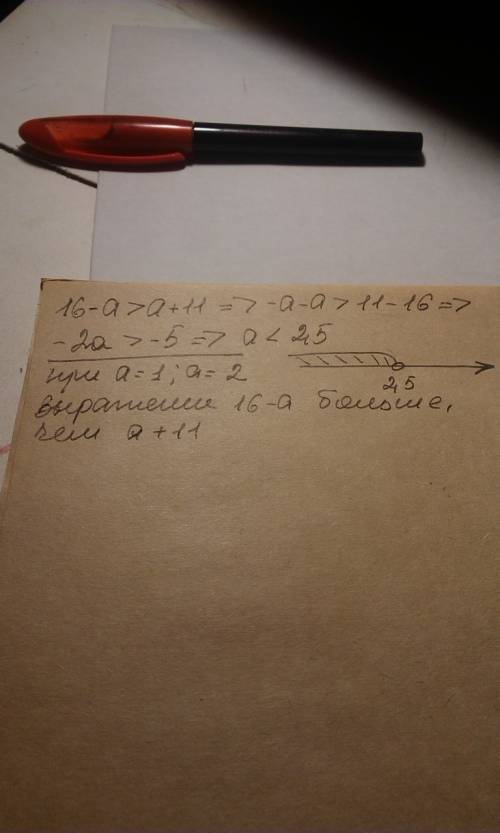 16-a>a+11 => -a-a>11-16 =>
-2a>-5 => a<2,5
при a=1; a=2
2,5
выражение 16-a больше,
чем a+11